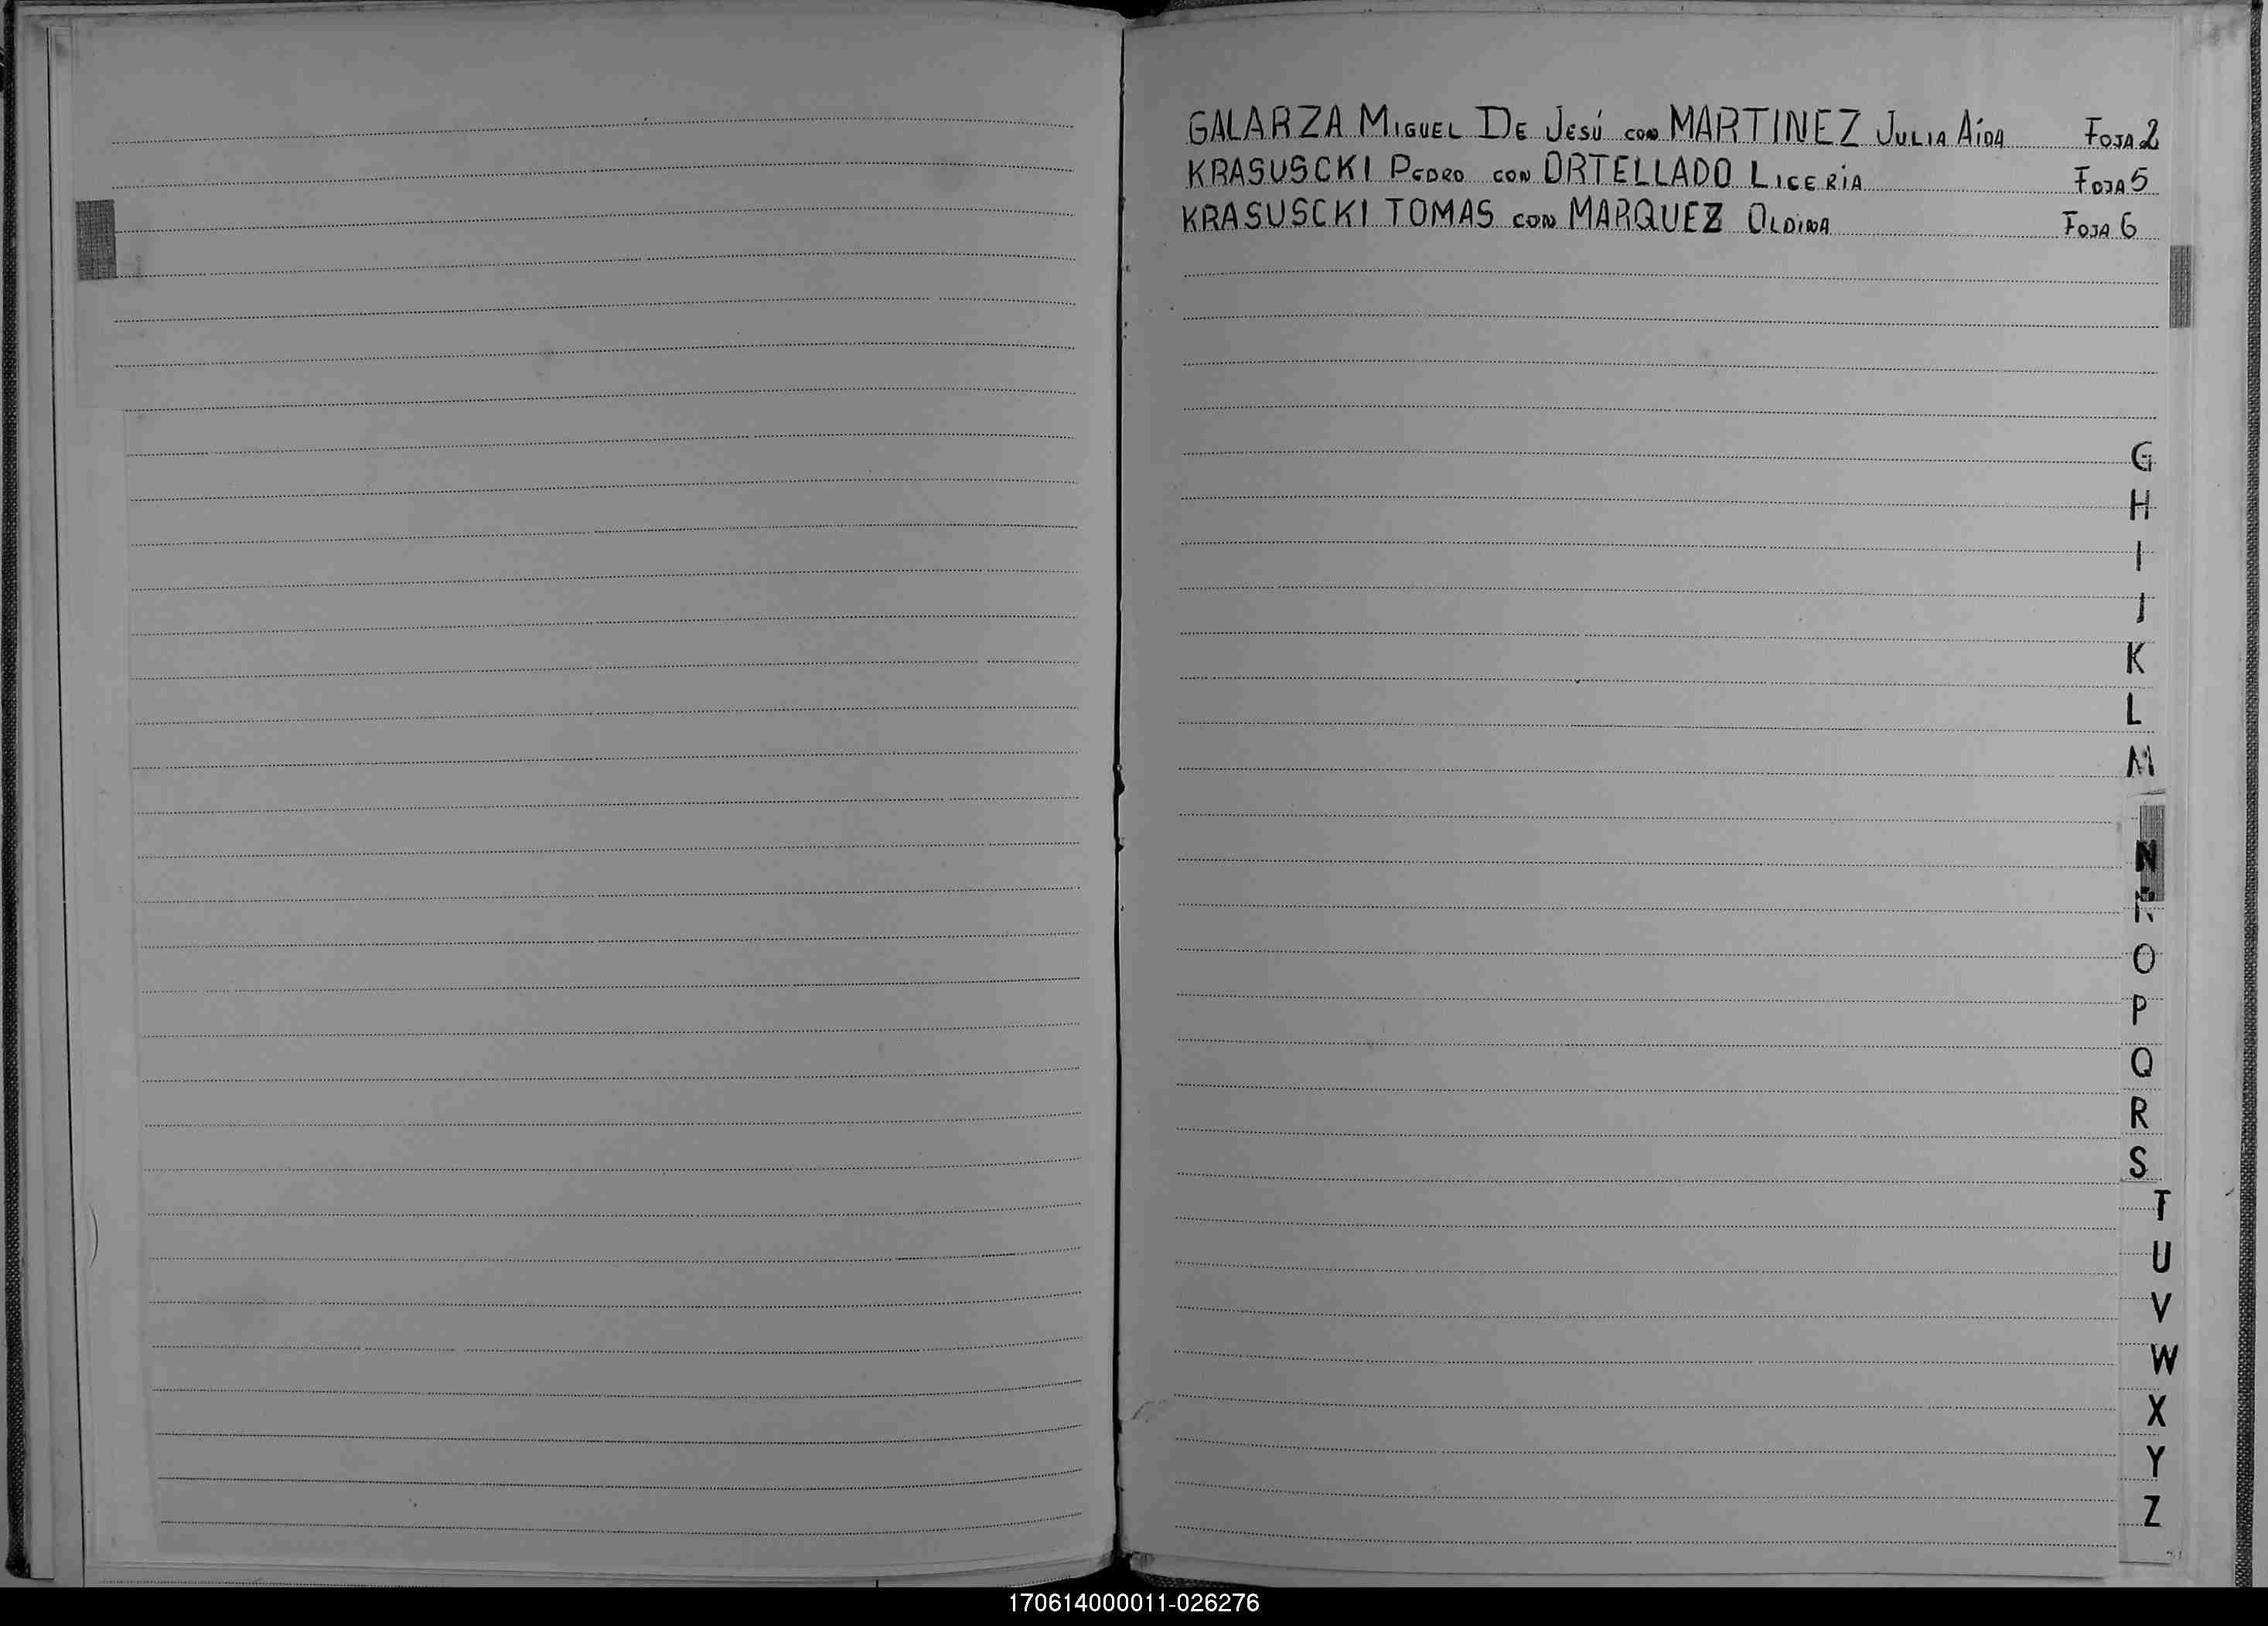 GALARZA MIGUEL DE JESÚ CON MARTINEZ JULIA AÍDA FOJA 2
KRASUSCKI PEDRO CON ORTELLADO LICERIA FOJA 5
KRASUSCKI TOMAS CON MARQUEZ OLDINA FOJA 6
G
H
I
J
K
L
M
N
O
P
Q
R
S
T
U
V
W
X
Y
Z
170614000011-026276